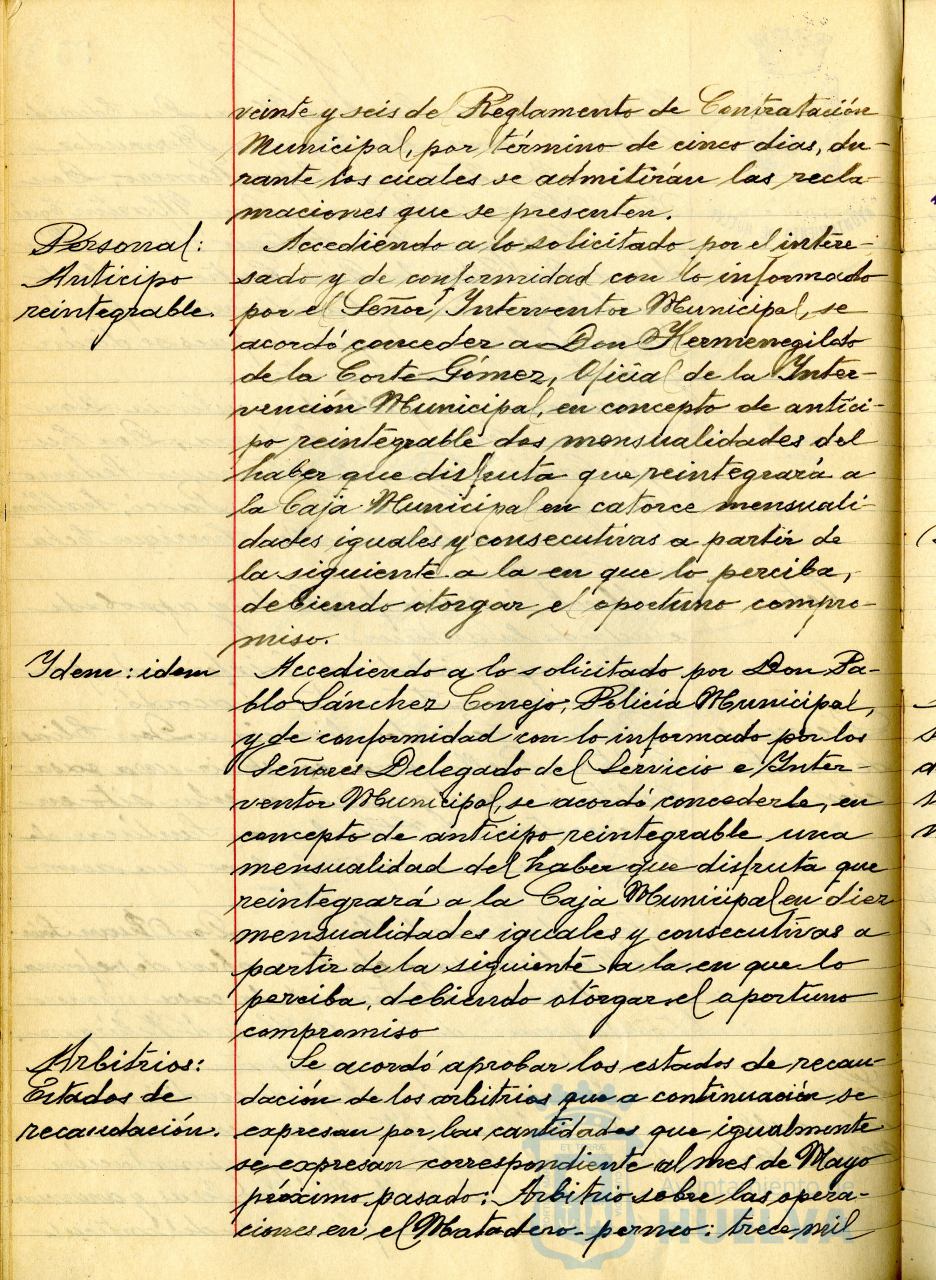 veinte y seis de Reglamento de Contratación
Municipal, por término de cinco dias, du-
rante los cuales se admitirán las recla-
maciones que se presenten.
Personal:
Anticipo
reintegrable.
Accediendo a lo solicitado por el intere-
sado y de conformidad con lo informado
por el Señor Interventor Municipal, se
acordó conceder a Don Hermenegildo
de la Corte Gómez, Oficial de la Inter-
vención Municipal, en concepto de antici-
po reintegrable dos mensualidades del
haber que disfruta que reintegrará a
la Caja Municipal en catorce mensuali-
dades iguales y consecutivas a partir de
la siguiente a la en que lo perciba,
debiendo otorgar el oportuno compro-
miso.
Ydem: idem
Accediendo a lo solicitado por Don Pa-
blo Sánchez Conejo, Policía Municipal,
y de conformidad con lo informado por los
Señores Delegado del Servicio e Inter-
ventor Municipal, se acordó concederle, en
concepto de anticipo reintegrable una
mensualidad del haber que disfruta que
reintegrará a la Caja Municipal en diez
mensualidades iguales y consecutivas a
partir de la siguiente a la en que lo
perciba, debiendo otorgar el oportuno
compromiso
Arbitrios:
Estados de
recaudación.
Se acordó aprobar los estados de recau-
dación de los arbitrios que a continuación se
expresan por las cantidades que igualmente
se expresan correspondiente al mes de Mayo
próximo pasado: Arbitrio sobre las opera-
ciones en el Matadero-perneo: trece mil
Ayuntamiento de
HUELVA